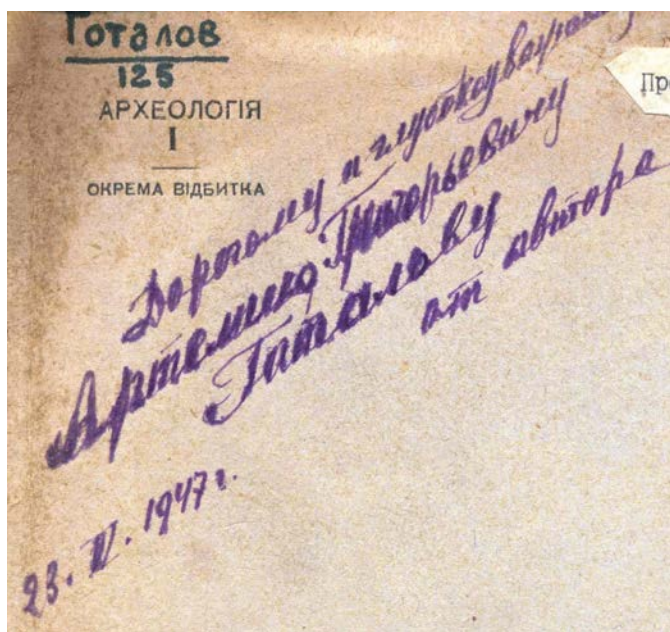 Готалов
125
АРХЕОЛОГІЯ
I
ОКРЕМА ВІДБИТКА
Пр
Дорогому и глубокоуважаемо
Артемию Григорьевичу
Готалову
от автора
23. IV. 1947 г.